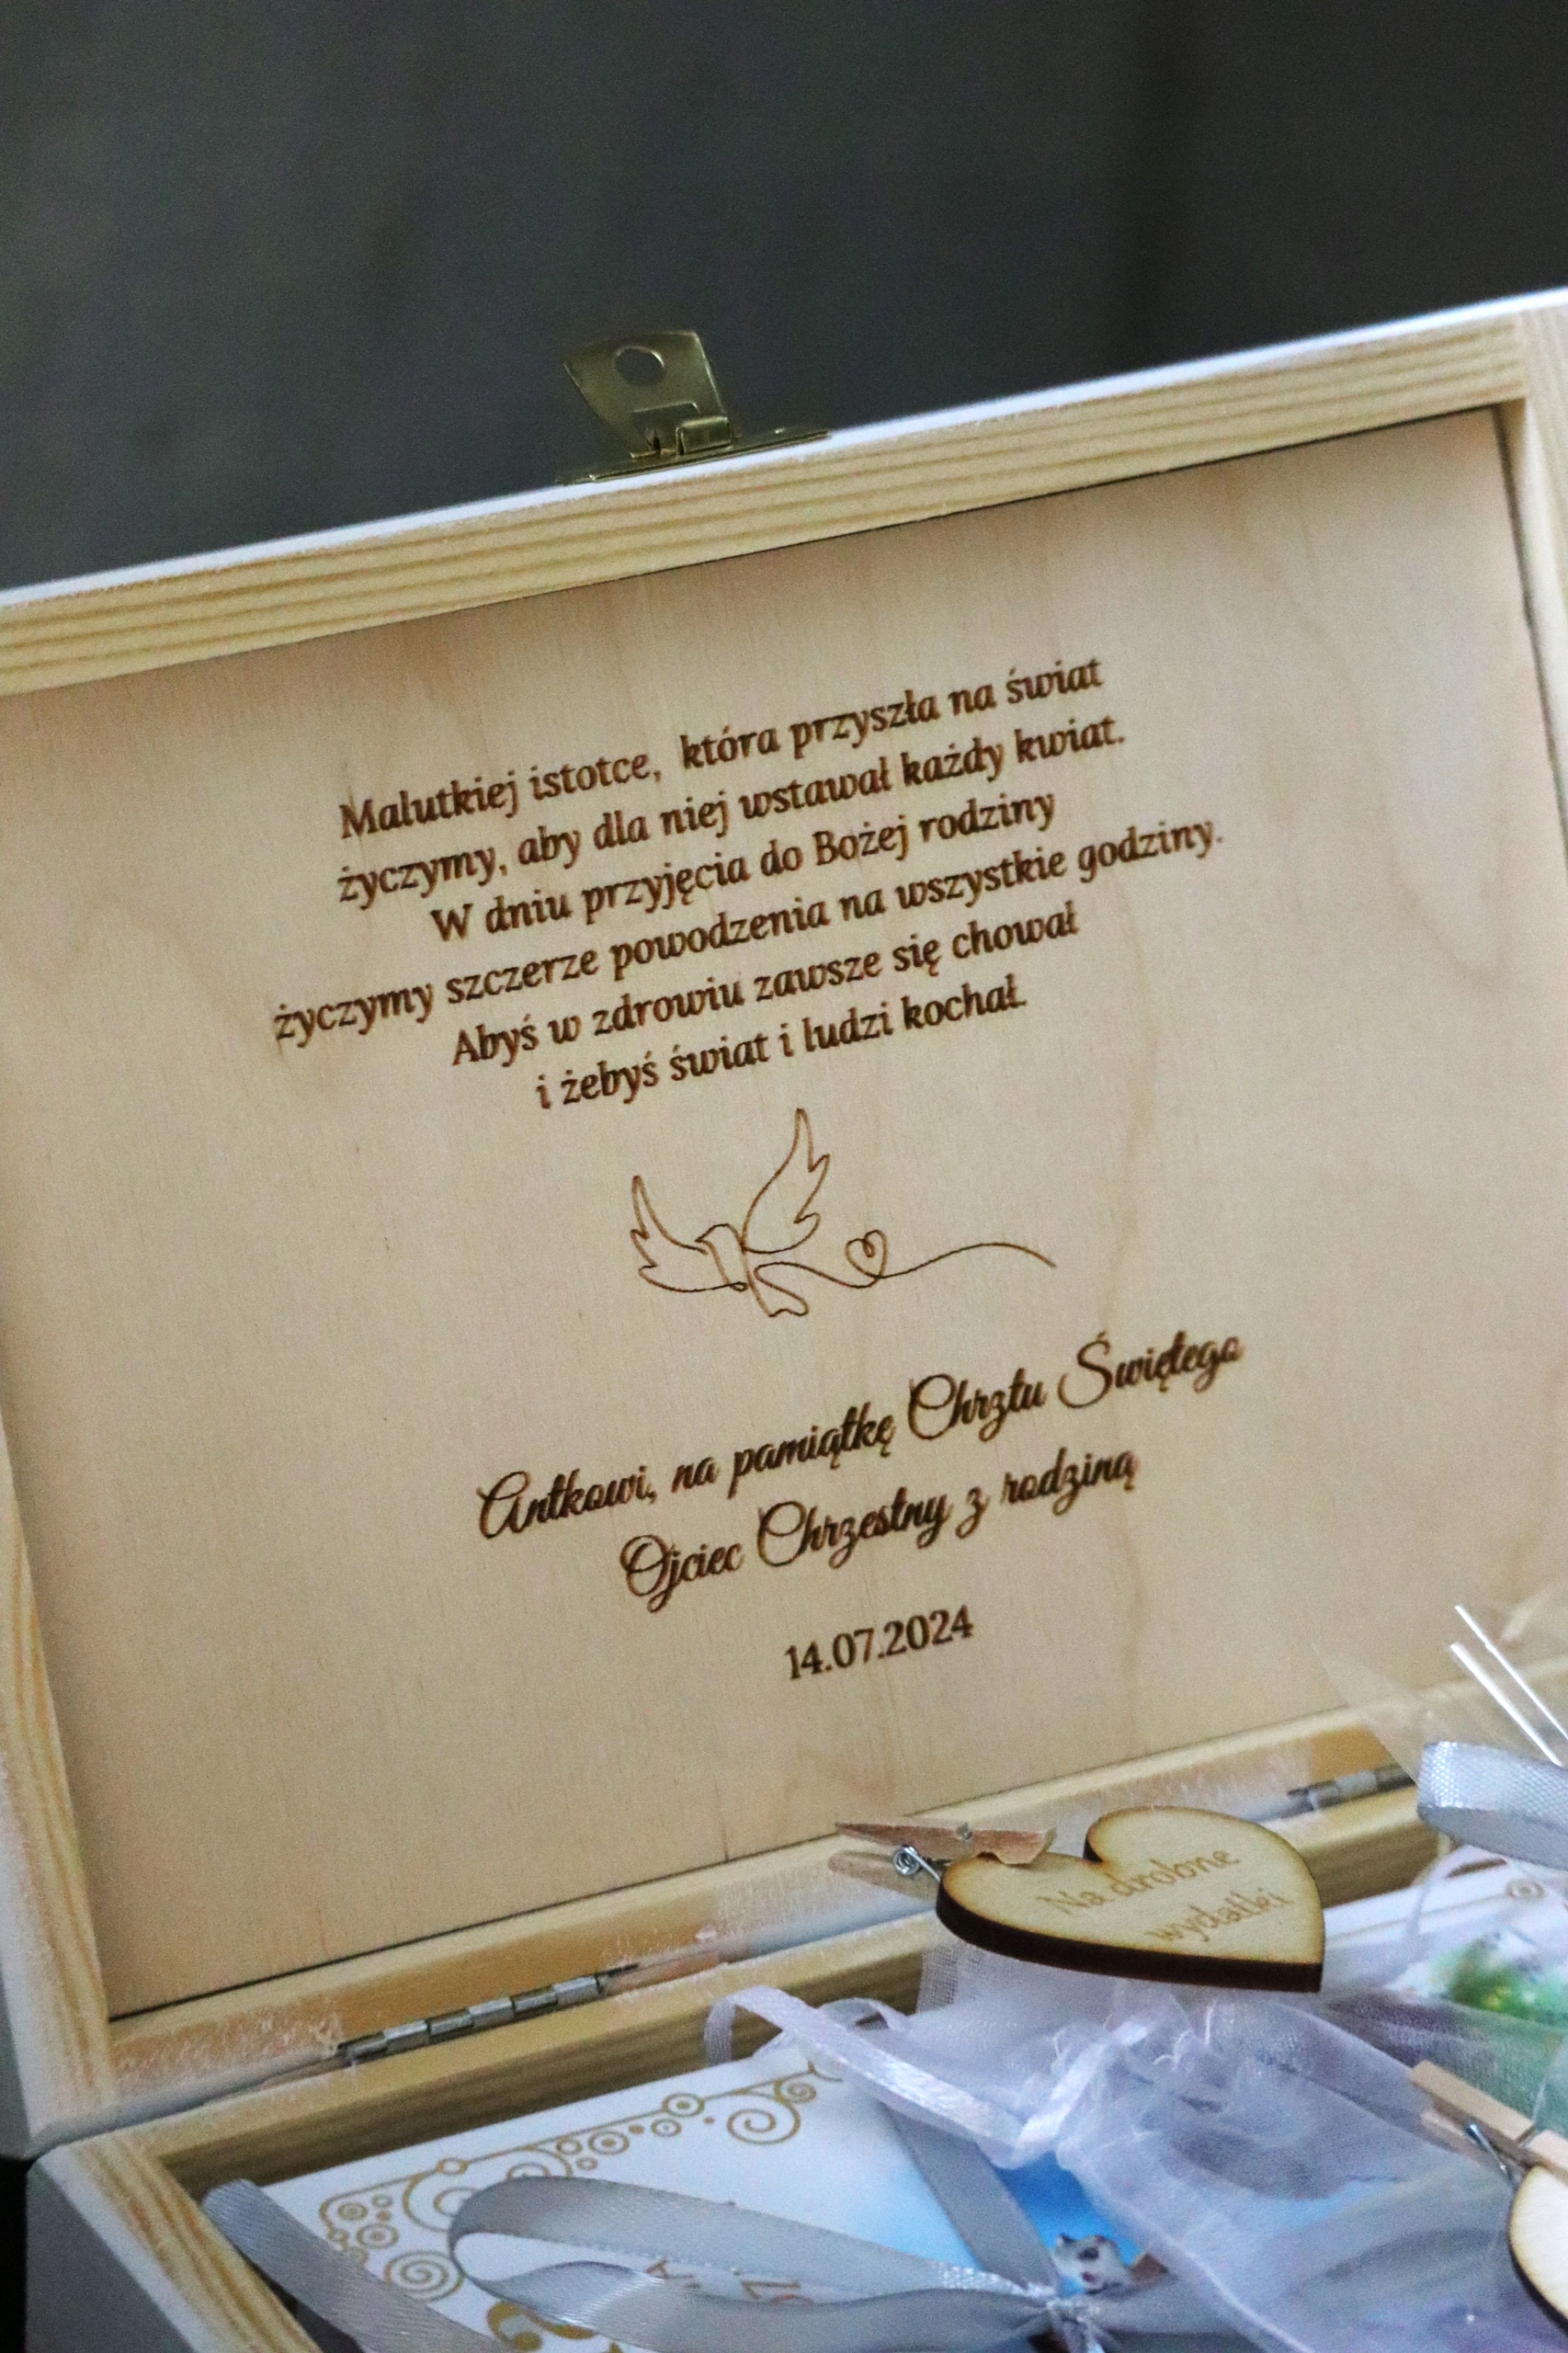 Malutkiej istotce, która przyszła na świat
życzymy, aby dla niej wstawał każdy kwiat.
W dniu przyjęcia do Bożej rodziny
życzymy szczerze powodzenia na wszystkie godziny.
Abyś w zdrowiu zawsze się chował
i żebyś świat i ludzi kochał.
Antkowi, na pamiątkę Chrztu Świętego
Ojciec Chrzestny z rodziną
14.07.2024
Na drobne
wydatki